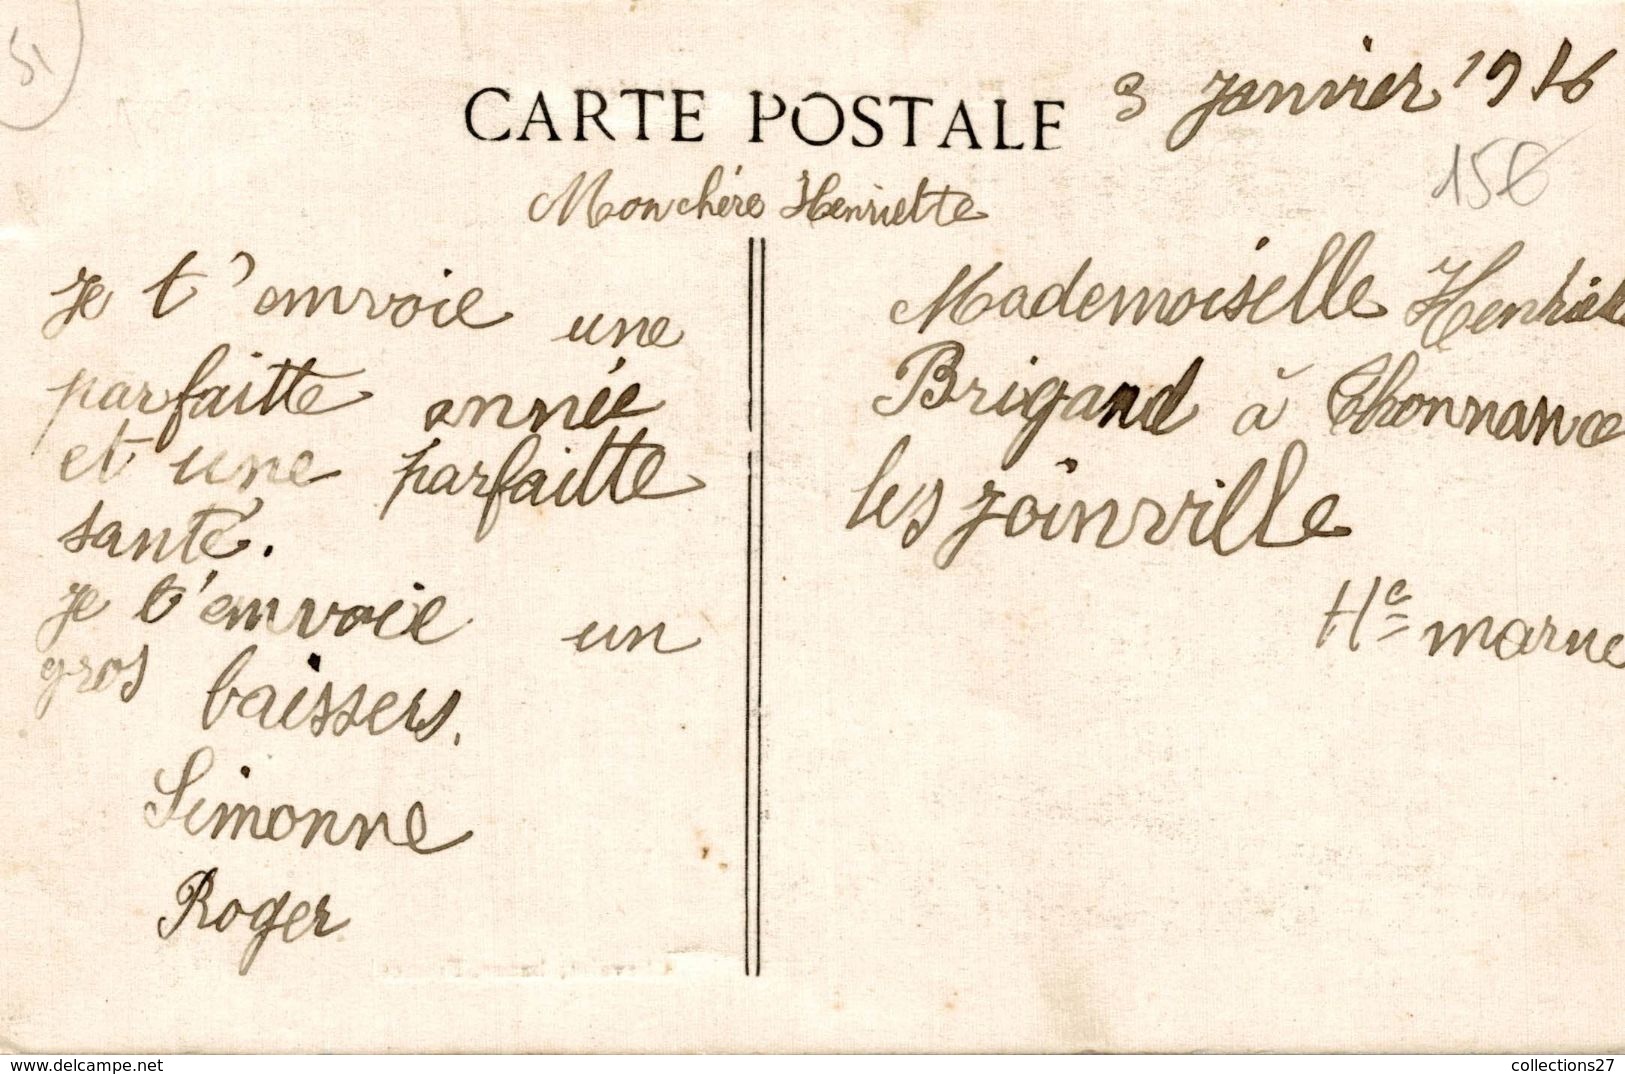 51
CARTE POSTALE
3 Janvier 1916
15€
Mon chére Henriette
Je t'envoie une
parfaitte année
et une parfaitte
santé.
Je t'envoie un
gros baissers.
Simonne
Roger
Mademoiselle Henriette
Brigand à Thonnance
les Joinville
Hte marne
delcampe.net
collections27